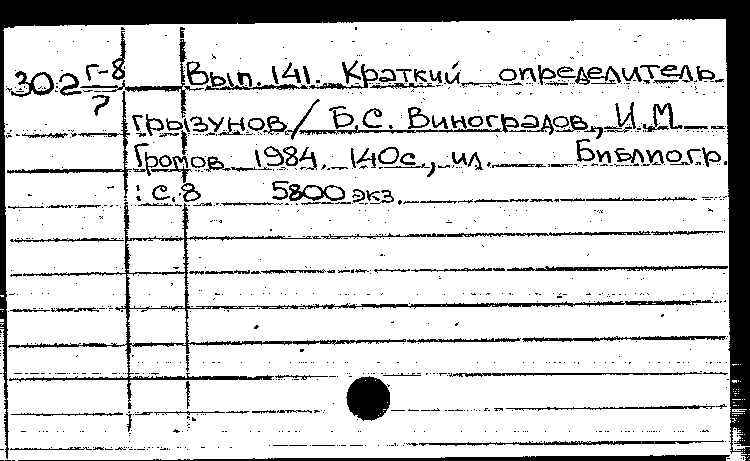 302 Г-8/7 Вып. 141. Краткий определитель
грызунов / Б.С. Виноградов, И.М.
Громов 1984. 140с., ил. Библиогр.
: с.8 5800 экз.